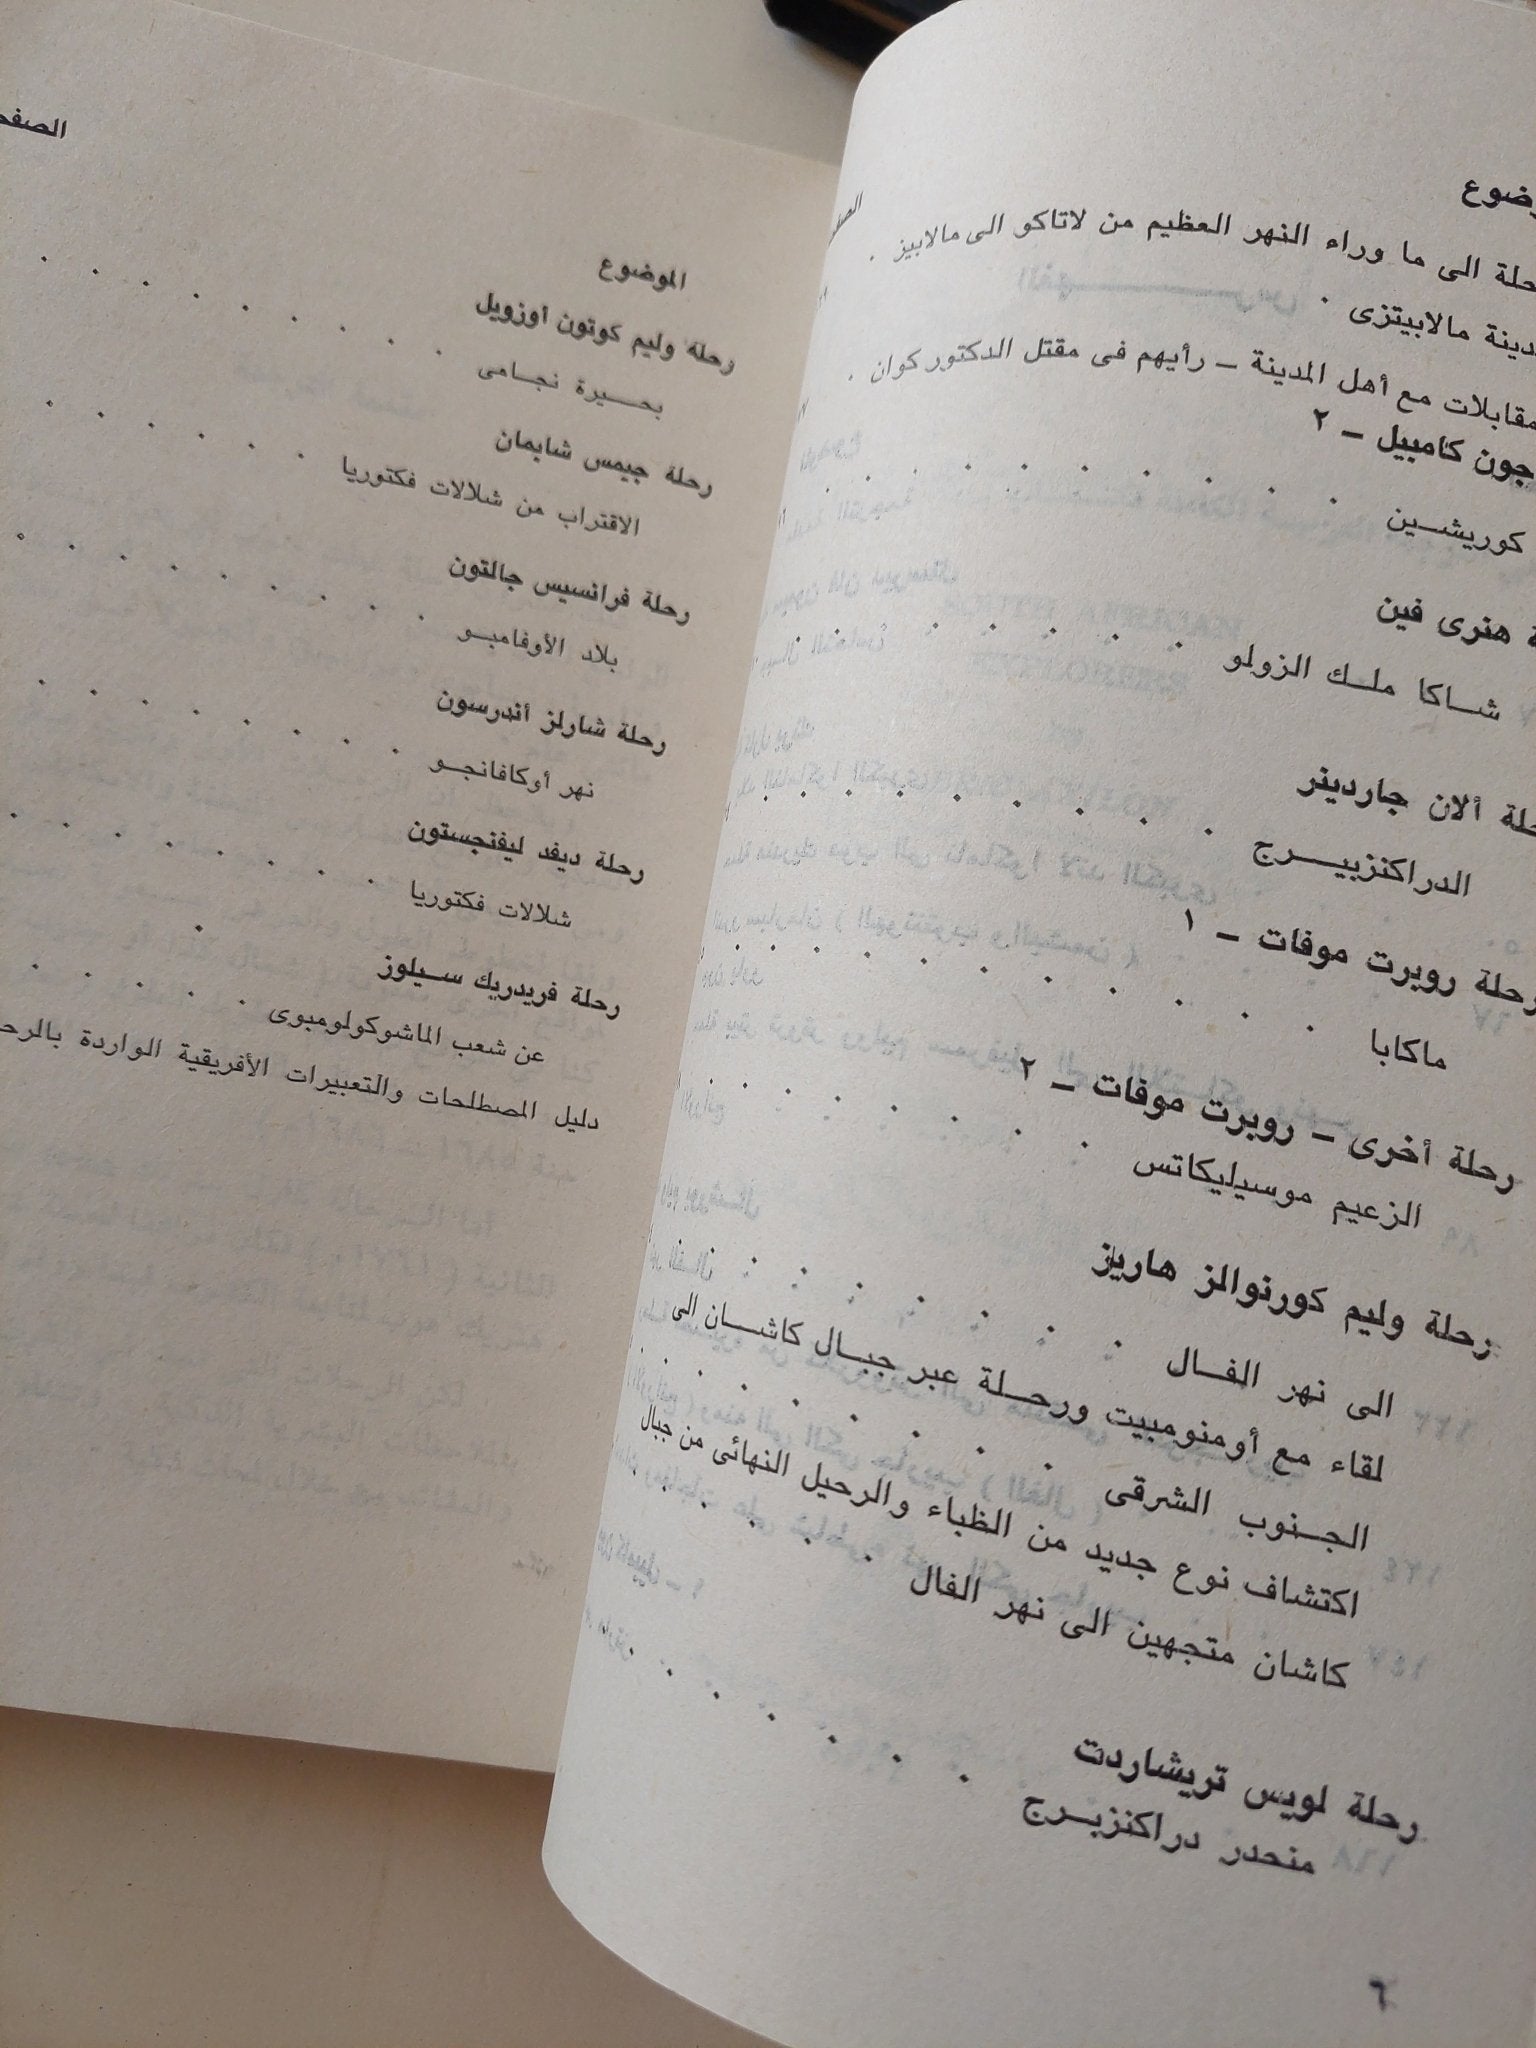 حلة الى ما وراء النهر العظيم من لاتاكو الى مالابيز .
دينة مالابيتزى .
مقابلات مع أهل المدينة – رأيهم فى مقتل الدكتور كوان .
جون كامبيل – ٢
كوريشـين
هنرى فين
شـاكا ملـك الزولو
حلة ألان جاردينر
الدراكنزبيـرج
رحلة روبرت موفات – ١
ماكابا
رحلة أخرى – روبرت موفات – ٢
الزعيم موسيليكاتس
رحلة وليم كورنوالز هاريز
الى نهر الفـال
لقاء مع أومنومبيت ورحـلة عبر جبـال كاشـان الى
الجـنوب الشرقى
اكتشاف نوع جديد من الظباء والرحيل النهائى من جبال
كاشان متجهين الى نهر الفال
رحلة لويس تريشاردت
منحدر دراكنزبـرج
٦
الموضوع
رحلة وليم كوتون أوزويل
بحـيرة نجـامى
رحلة جيمس شابمان
الاقتراب من شلالات فكتوريا
رحلة فرانسيس جالتون
بلاد الأوفامبـو
رحلة شارلز أندرسون
نهر أوكافانجـو
رحلة ديفد ليفنجستون
شلالات فكتوريا
رحلة فريدريك سـيلوز
عن شعب الماشوكولومبوى
دليل المصطلحات والتعبيرات الأفريقية الواردة بالرح